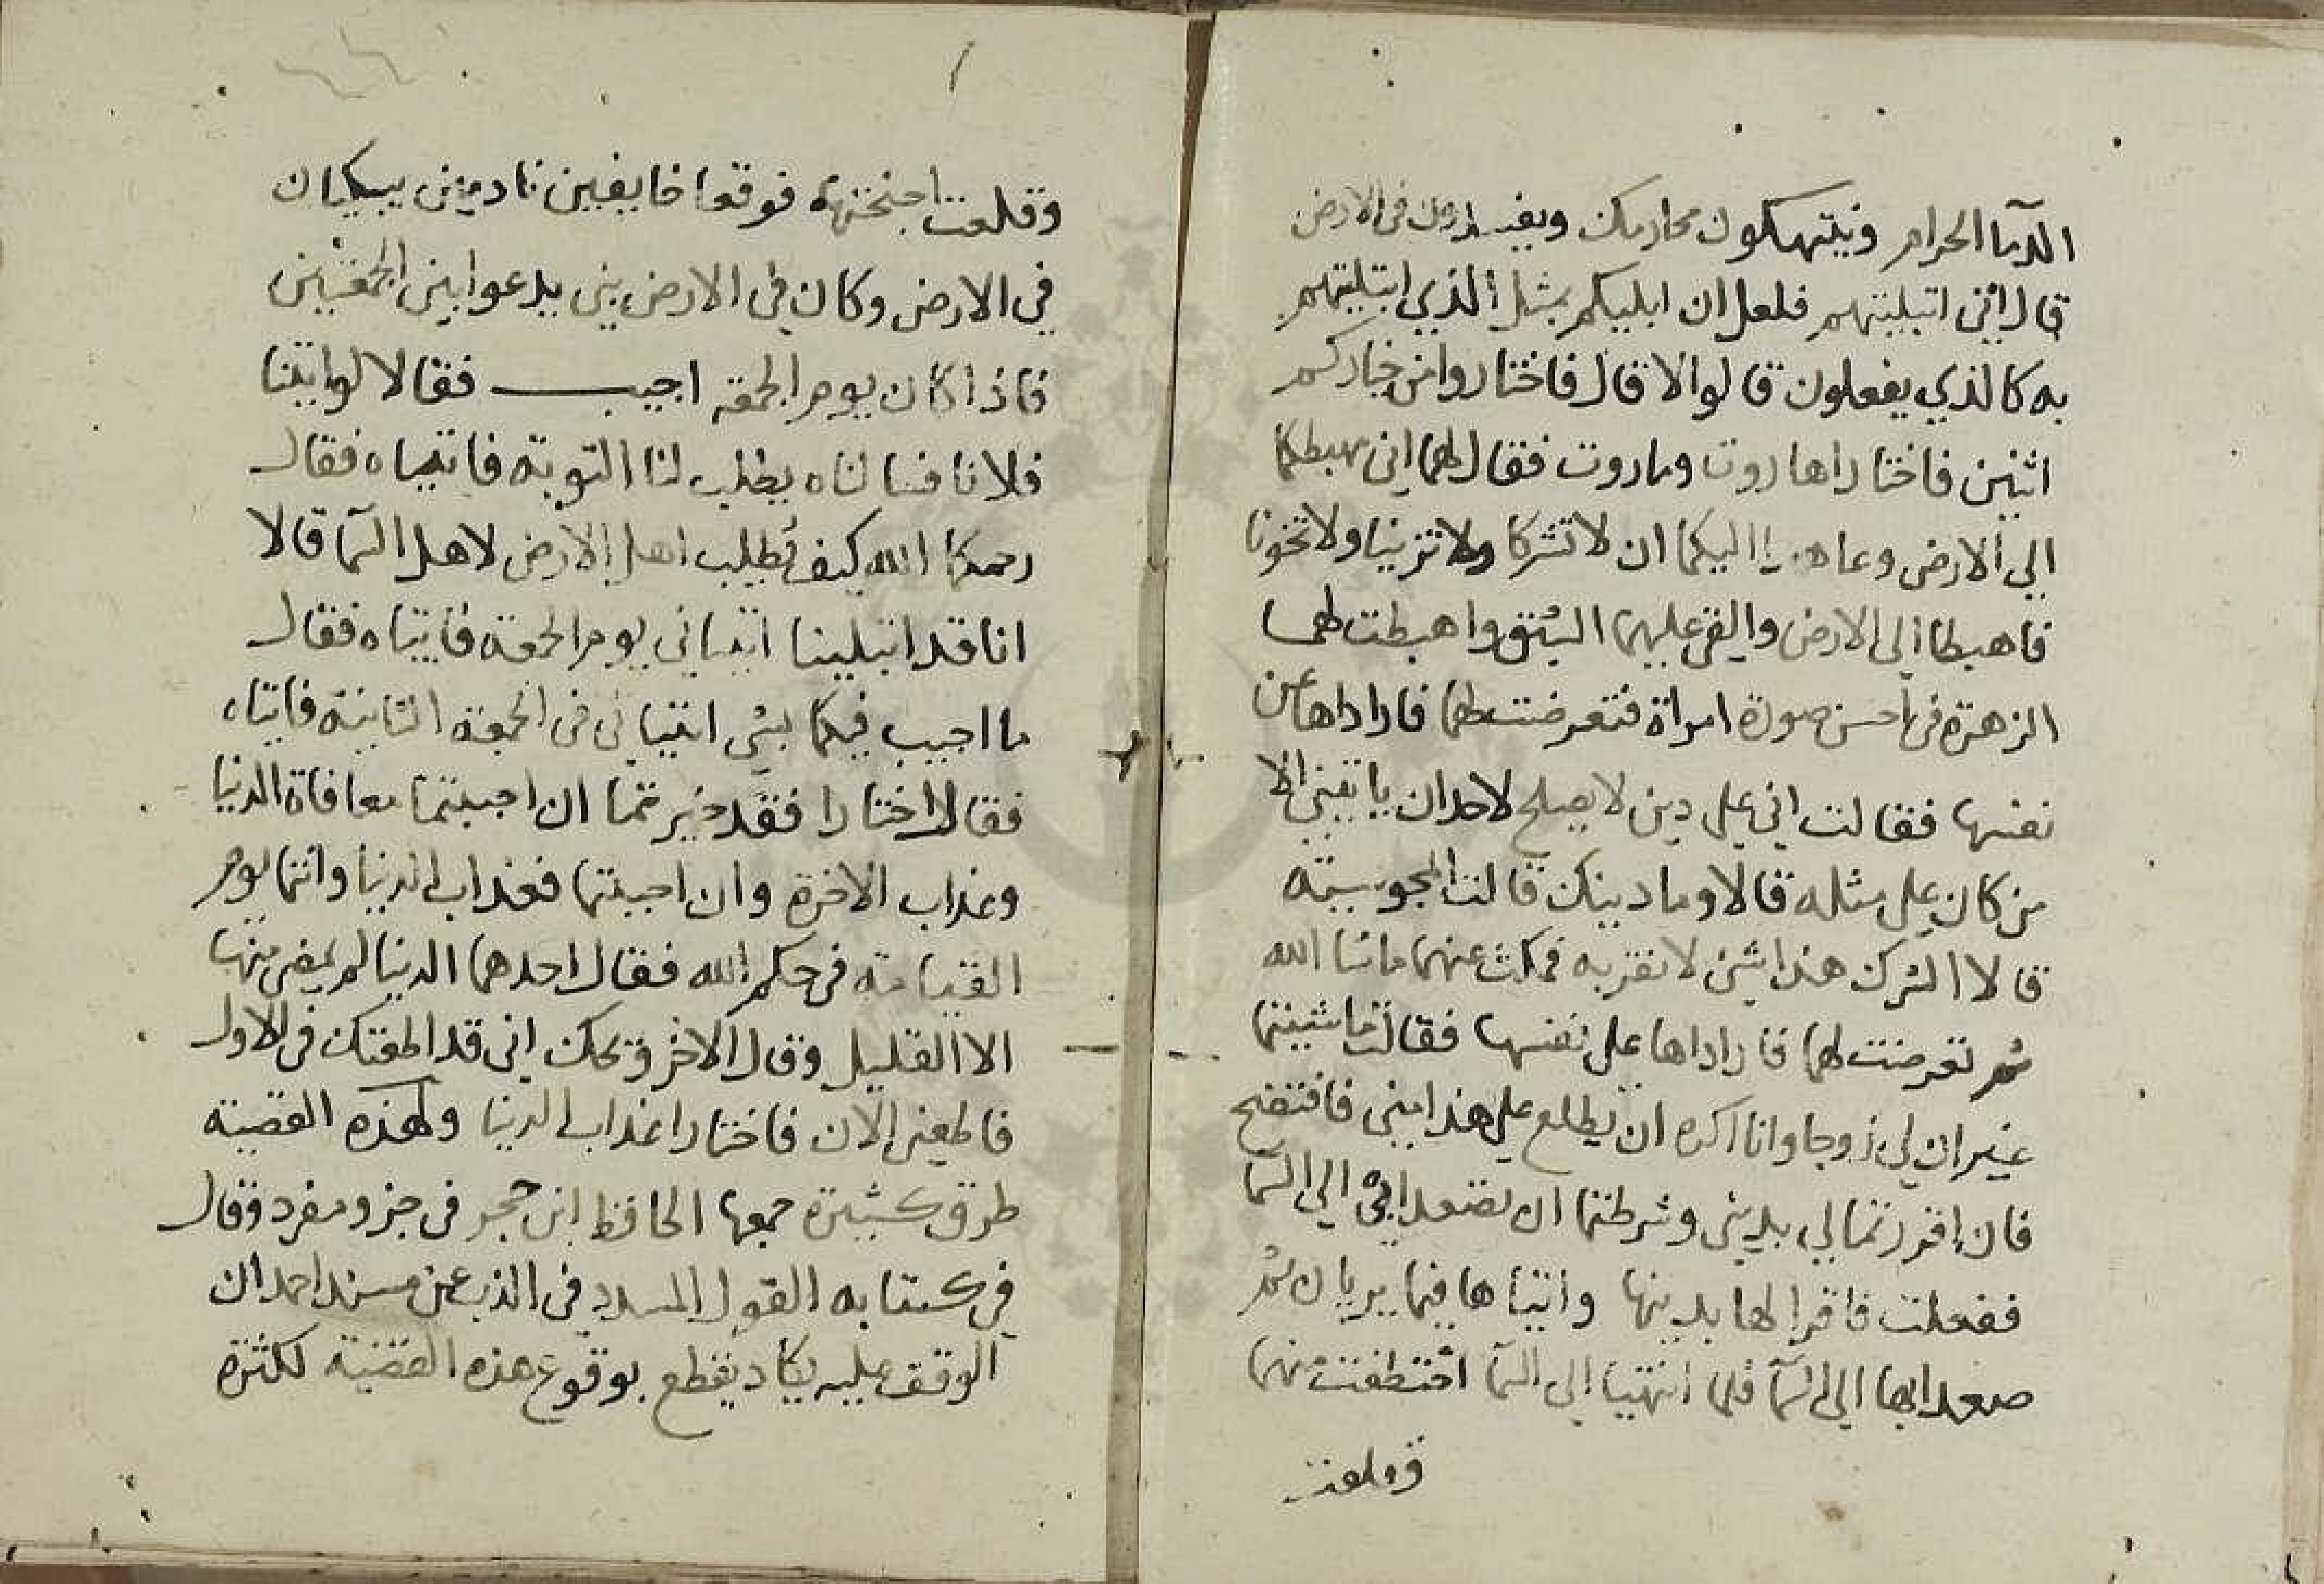 الدما الحرام وينتهكون محارمك ويفسدون في الارض
قال اني ابتليتهم فلعل ان ابليكم بمثل الذي ابتليتهم
به كالذي يفعلون قالوا لا قال فاختاروا من خياركم
اثنين فاختاروا هاروت وماروت فقال لهما اني مهبطكما
الي الارض وعاهد اليكما ان لا تشركا ولا تزنيا ولا تخونا
فاهبطا الي الارض والقي عليهما الشبق واهبطت لهما
الزهرة في احسن صورة امراة فتعرضت لهما فاراداها عن
نفسها فقالت اني علي دين لا يصلح لاحد ان ياتيني الا
من كان علي مثله قالا وما دينك قالت المجوسية
قالا الشرك هذا شي لا نقر به فمكث عنهما ما شا الله
ثم تعرضت لهما فاراداها علي نفسها فقالت ما شيتما
غير ان لي زوجا وانا اكره ان يطلع علي هذا مني فافتضح
فان اقررتما لي بديني وشرطتما ان تصعدا بي الي السما
ففعلت فاقرا لها بدينها واتياها فيما يريان ثم
صعدا بها الي السما فلما انتهيا الي السما اختطفت منهما
وقلعت
وقلعت اجنحتهما فوقعا خايفين نادمين يبكيان
في الارض وكان في الارض بني يدعوا بين الجمعتين
فاذا كان يوم الجمعة اجيب فقالا لو اتينا
فلانا فسالناه يطلب لنا التوبة فاتياه فقال
رحمكما الله كيف يطلب اهل الارض لاهل السما قالا
انا قد ابتلينا اتياني يوم الجمعة فاتياه فقال
ما اجيب فيكما بشي ايتياني في الجمعة الثانية فاتياه
فقال اختارا فقد خيرتما ان احببتما معافاة الدنيا
وعذاب الاخرة وان احببتما فعذاب الدنيا وانتما يوم
القيامة في حكم الله فقال احدهما الدنيا لم يمض منها
الا القليل وقال الاخر ويحك اني قد اطعتك في الاول
فاطعني الان فاختارا عذاب الدنيا ولهذه القصية
طرق كثيرة جمعها الحافظ ابن حجر في جزو مفرد وقال
في كتابه القول المسدد في الذب عن مسند احمد ان
الوقف عليه يكاد يقطع بوقوع هذه القضية لكثرة